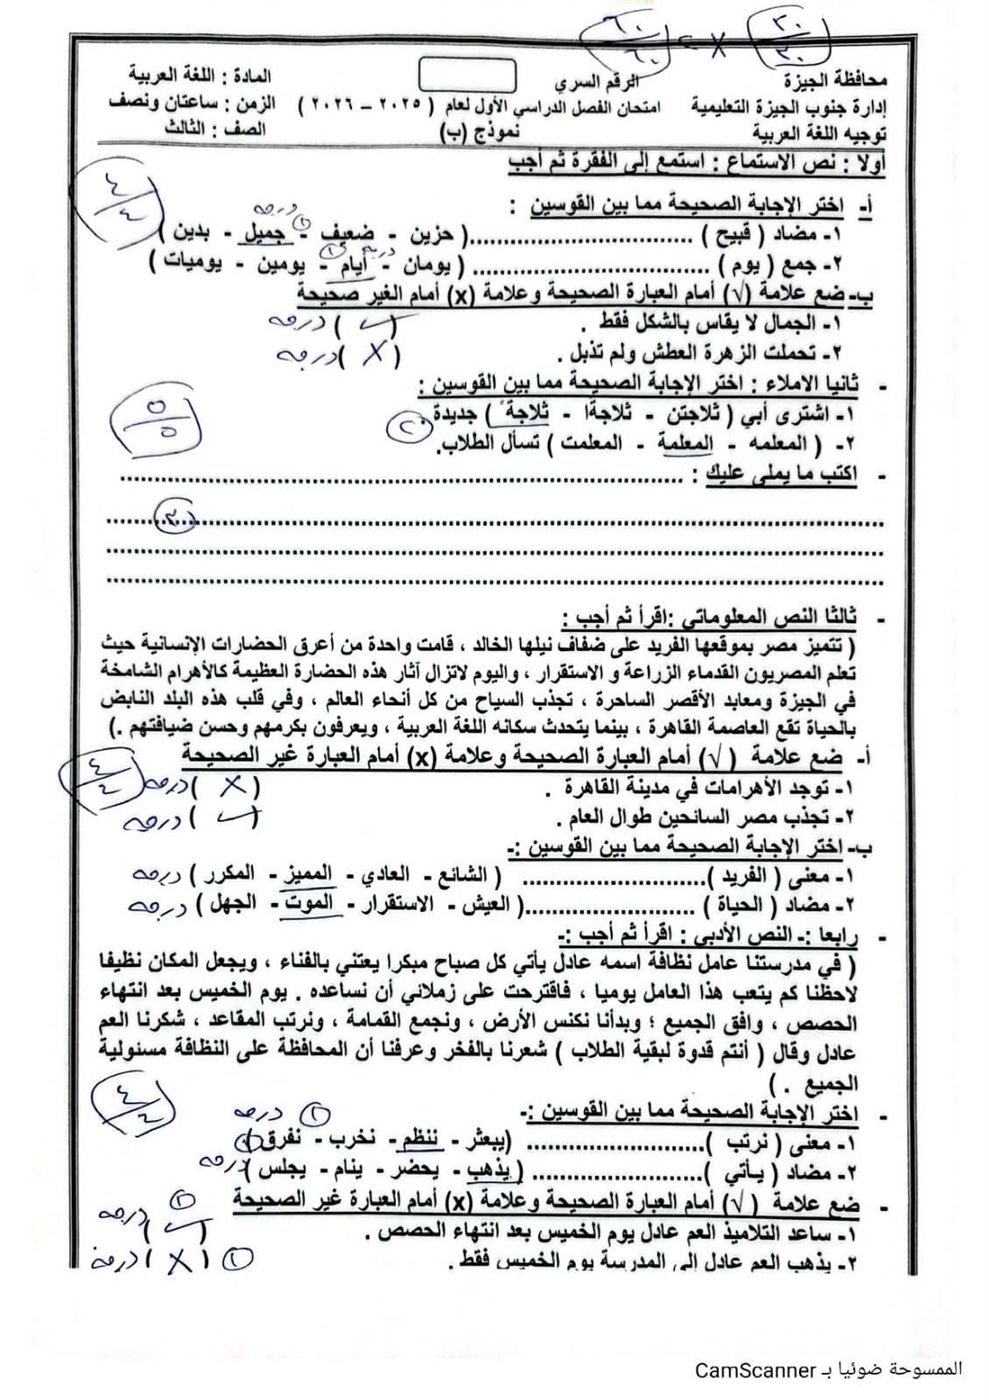 ٣٠/٣٠ × ٢ = ٦٠/٦٠
محافظة الجيزة الرقم السري المادة : اللغة العربية
إدارة جنوب الجيزة التعليمية امتحان الفصل الدراسي الأول لعام ( ٢٠٢٥ – ٢٠٢٦ ) الزمن : ساعتان ونصف
توجيه اللغة العربية نموذج (ب) الصف : الثالث
أولا : نص الاستماع : استمع إلى الفقرة ثم أجب
٤/٤
أ- اختر الإجابة الصحيحة مما بين القوسين :
درجه
١- مضاد ( قبيح ) ................................( حزين - ضعيف - جميل - بدين )
درجه
٢- جمع ( يوم ) ................................ ( يومان - أيام - يومين - يوميات )
ب- ضع علامة (√) أمام العبارة الصحيحة وعلامة (x) أمام الغير صحيحة
١- الجمال لا يقاس بالشكل فقط . ( ✓ ) درجه
٢- تحملت الزهرة العطش ولم تذبل . ( X ) درجه
- ثانيا الاملاء : اختر الإجابة الصحيحة مما بين القوسين :
٥/٥
١- اشترى أبي ( ثلاجتن - ثلاجةا - ثلاجة ً ) جديدة . ٢
٢- ( المعلمه - المعلمة - المعلمت ) تسأل الطلاب.
- اكتب ما يملى عليك : ................................
................................ ٣
................................
................................
- ثالثا النص المعلوماتي :اقرأ ثم أجب :
( تتميز مصر بموقعها الفريد على ضفاف نيلها الخالد ، قامت واحدة من أعرق الحضارات الإنسانية حيث
تعلم المصريون القدماء الزراعة و الاستقرار ، واليوم لاتزال آثار هذه الحضارة العظيمة كالأهرام الشامخة
في الجيزة ومعابد الأقصر الساحرة ، تجذب السياح من كل أنحاء العالم ، وفي قلب هذه البلد النابض
بالحياة تقع العاصمة القاهرة ، بينما يتحدث سكانه اللغة العربية ، ويعرفون بكرمهم وحسن ضيافتهم .)
أ- ضع علامة ( √) أمام العبارة الصحيحة وعلامة (x) أمام العبارة غير الصحيحة
٤/٤
١- توجد الأهرامات في مدينة القاهرة . ( X ) درجه
٢- تجذب مصر السائحين طوال العام . ( ✓ ) درجه
ب- اختر الإجابة الصحيحة مما بين القوسين :-
١- معنى ( الفريد )............................ ( الشائع - العادي - المميز - المكرر ) درجه
٢- مضاد ( الحياة ) ............................( العيش - الاستقرار - الموت - الجهل ) درجه
- رابعا :- النص الأدبي : اقرأ ثم أجب :-
( في مدرستنا عامل نظافة اسمه عادل يأتي كل صباح مبكرا يعتني بالفناء ، ويجعل المكان نظيفا
لاحظنا كم يتعب هذا العامل يوميا ، فاقترحت على زملائي أن نساعده . يوم الخميس بعد انتهاء
الحصص ، وافق الجميع ؛ وبدأنا نكنس الأرض ، ونجمع القمامة ، ونرتب المقاعد ، شكرنا العم
عادل وقال ( أنتم قدوة لبقية الطلاب ) شعرنا بالفخر وعرفنا أن المحافظة على النظافة مسئولية
الجميع . )
٤/٤
- اختر الإجابة الصحيحة مما بين القوسين :- ١ درجه
١- معنى ( نرتب )............................ (يبعثر - ننظم - نخرب - نفرق )
٢- مضاد ( يأتي )............................ ( يذهب - يحضر - ينام - يجلس ) درجه
- ضع علامة ( √) أمام العبارة الصحيحة وعلامة (x) أمام العبارة غير الصحيحة ١
١- ساعد التلاميذ العم عادل يوم الخميس بعد انتهاء الحصص . ( ✓ ) درجه
٢- يذهب العم عادل إلى المدرسة يوم الخميس فقط . ١ ( X ) درجة
الممسوحة ضوئيا بـ CamScanner